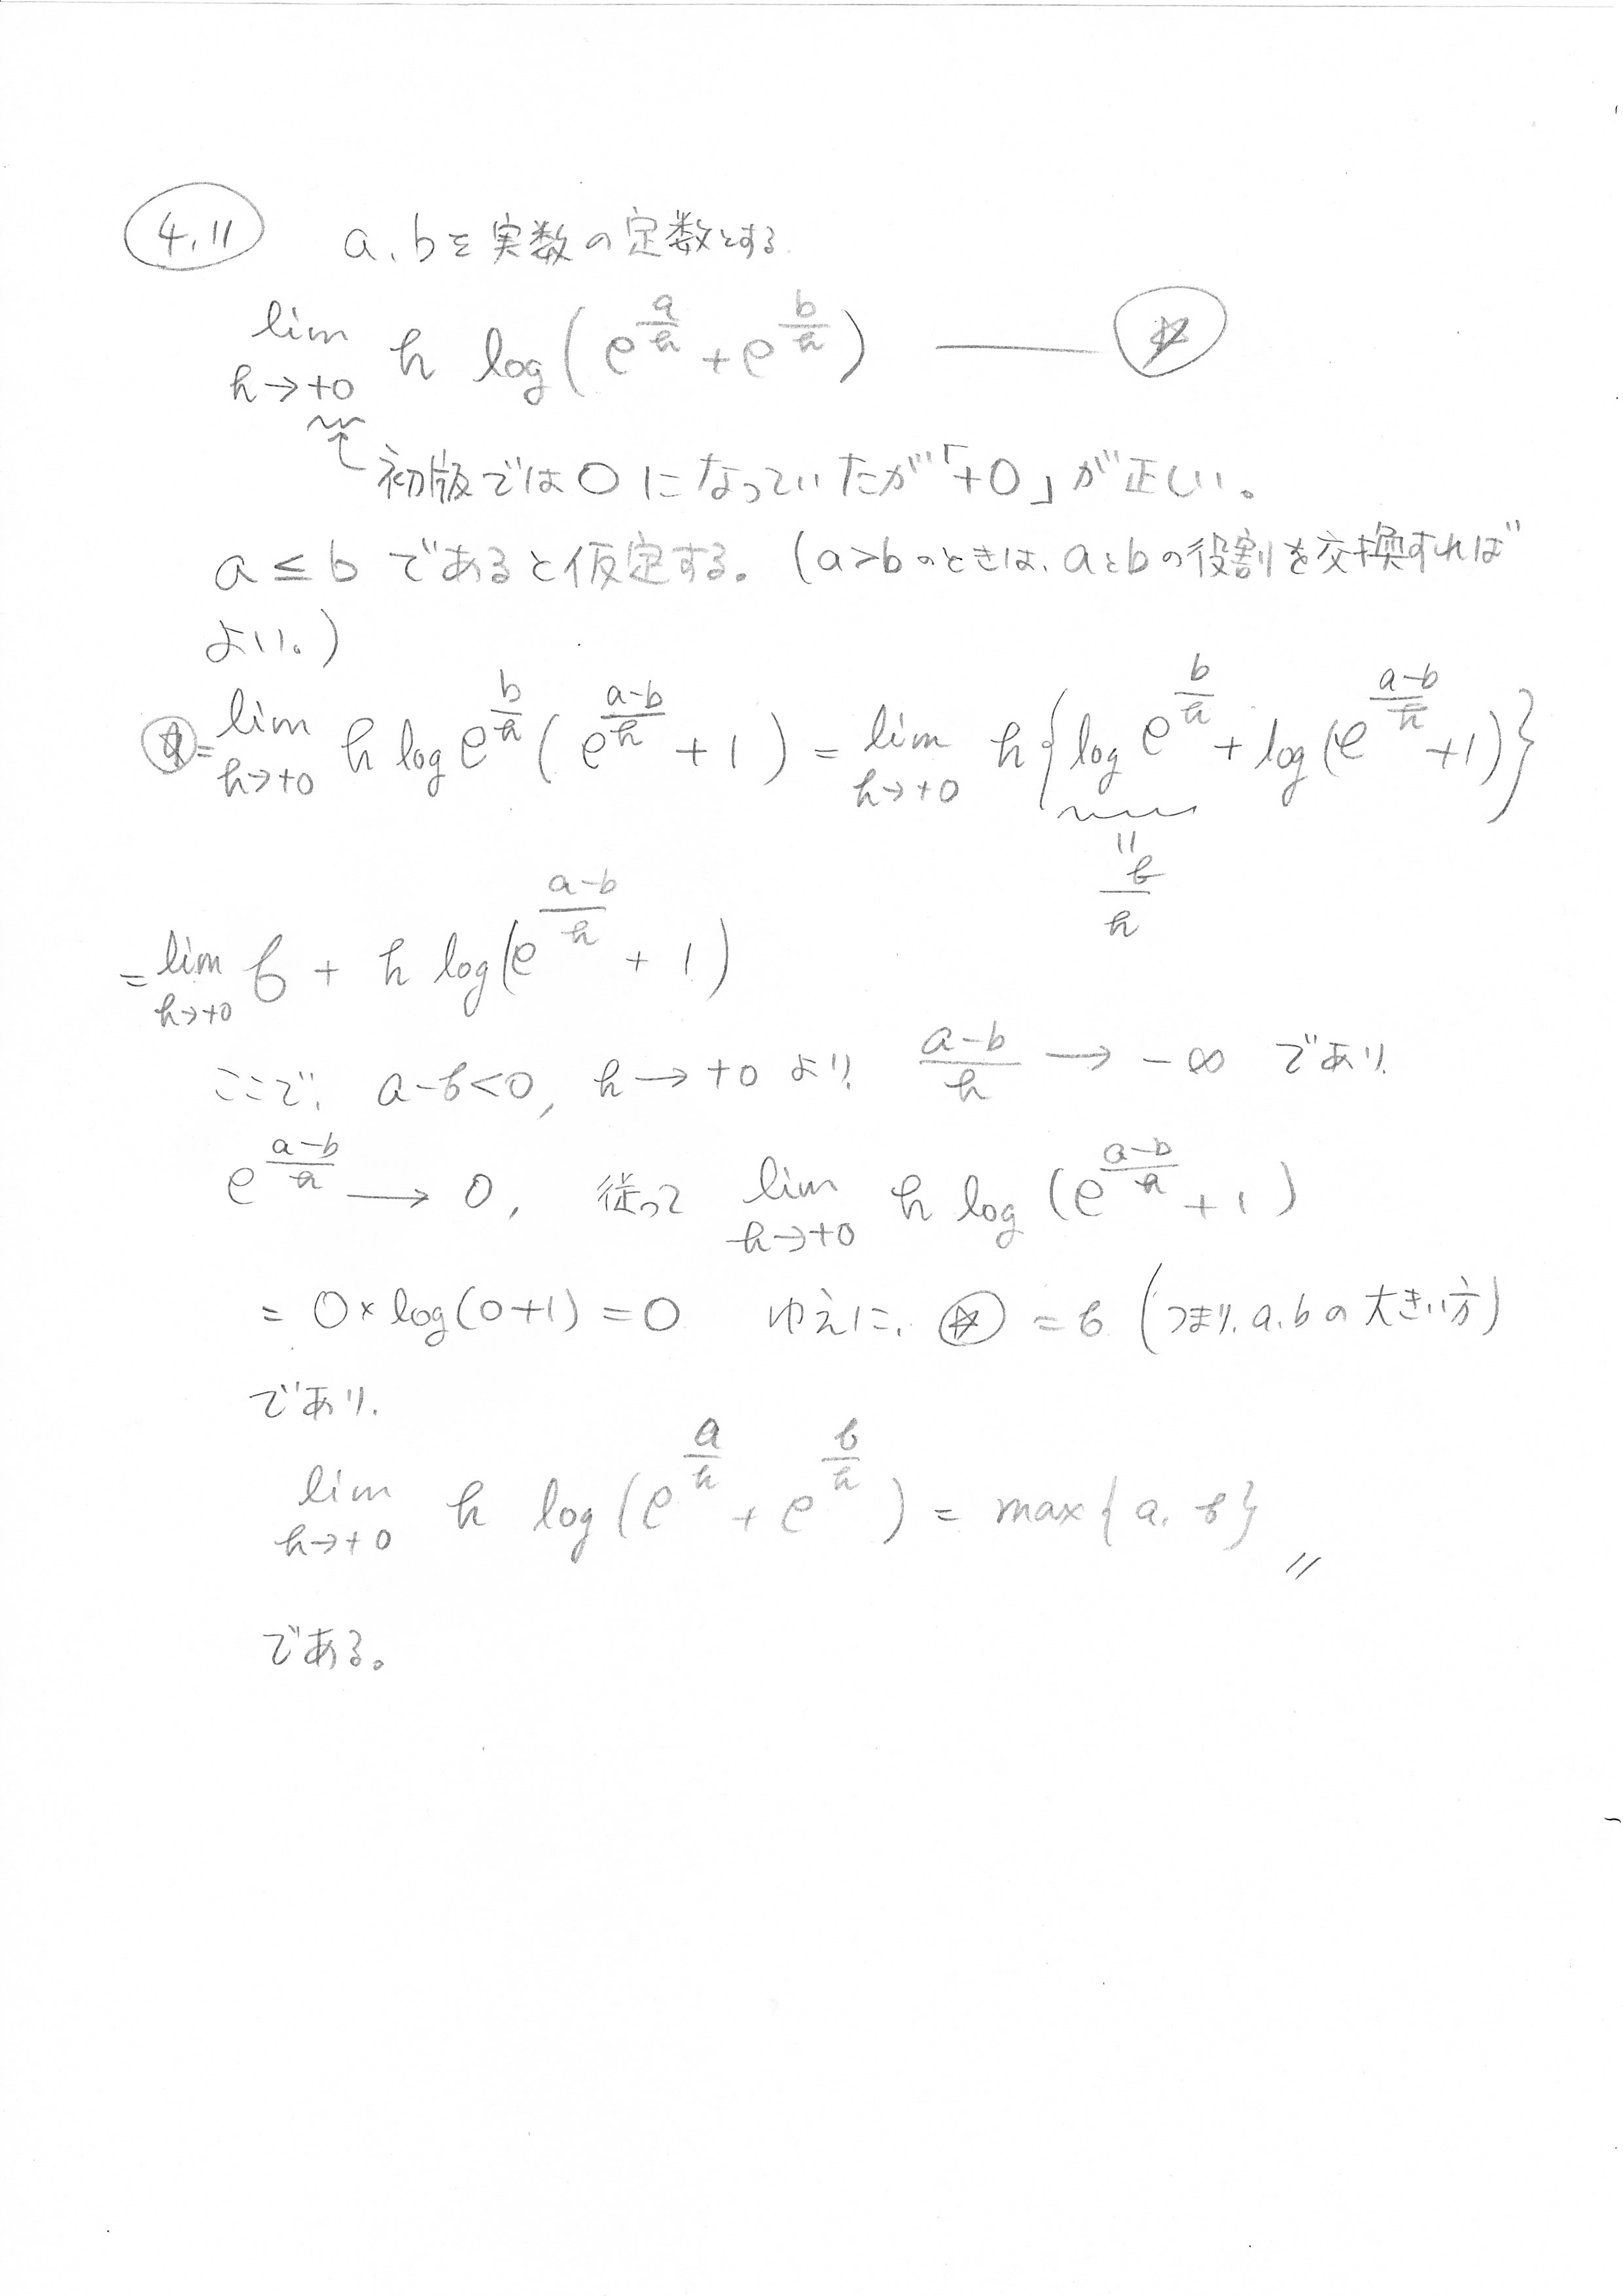 4.11 a、bを実数の定数とする.
lim_{h→+0} h log(e^{a/h} + e^{b/h}) —— ☆
初版では0になっていたが「+0」が正しい。
a ≤ b であると仮定する。(a>bのときは、aとbの役割を交換すれば
よい。)
☆= lim_{h→+0} h log e^{b/h} ( e^{(a-b)/h} + 1 ) = lim_{h→+0} h{ log e^{b/h} + log(e^{(a-b)/h} + 1) }
= b/h
= lim_{h→+0} b + h log(e^{(a-b)/h} + 1)
ここで、 a-b<0, h→+0 より、 (a-b)/h → -∞ であり、
e^{(a-b)/h} → 0, 従って lim_{h→+0} h log (e^{(a-b)/h} + 1)
= 0×log(0+1) = 0 ゆえに、 ☆ = b (つまり、a、bの大きい方)
であり、
lim_{h→+0} h log(e^{a/h} + e^{b/h}) = max{a, b} //
である。